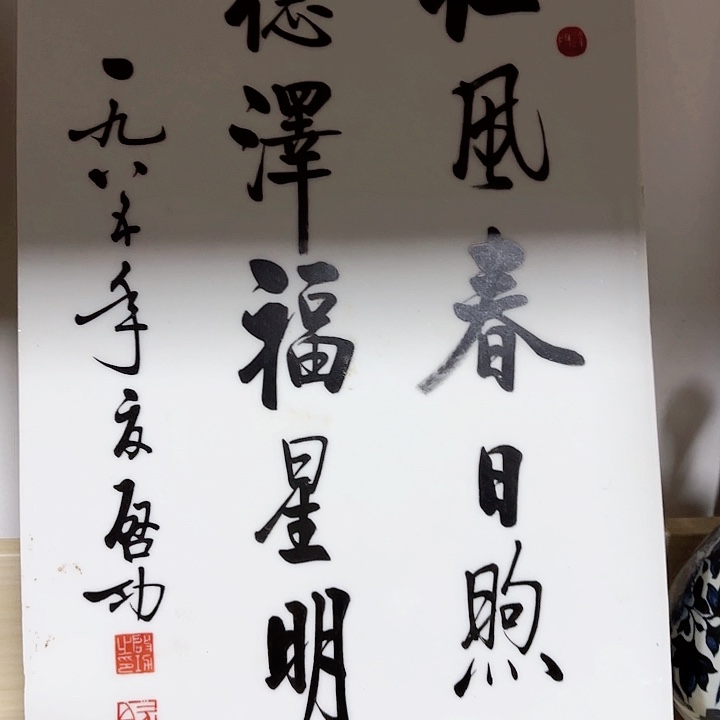 風春日煦
德澤福星明
一九八五年夏啓功